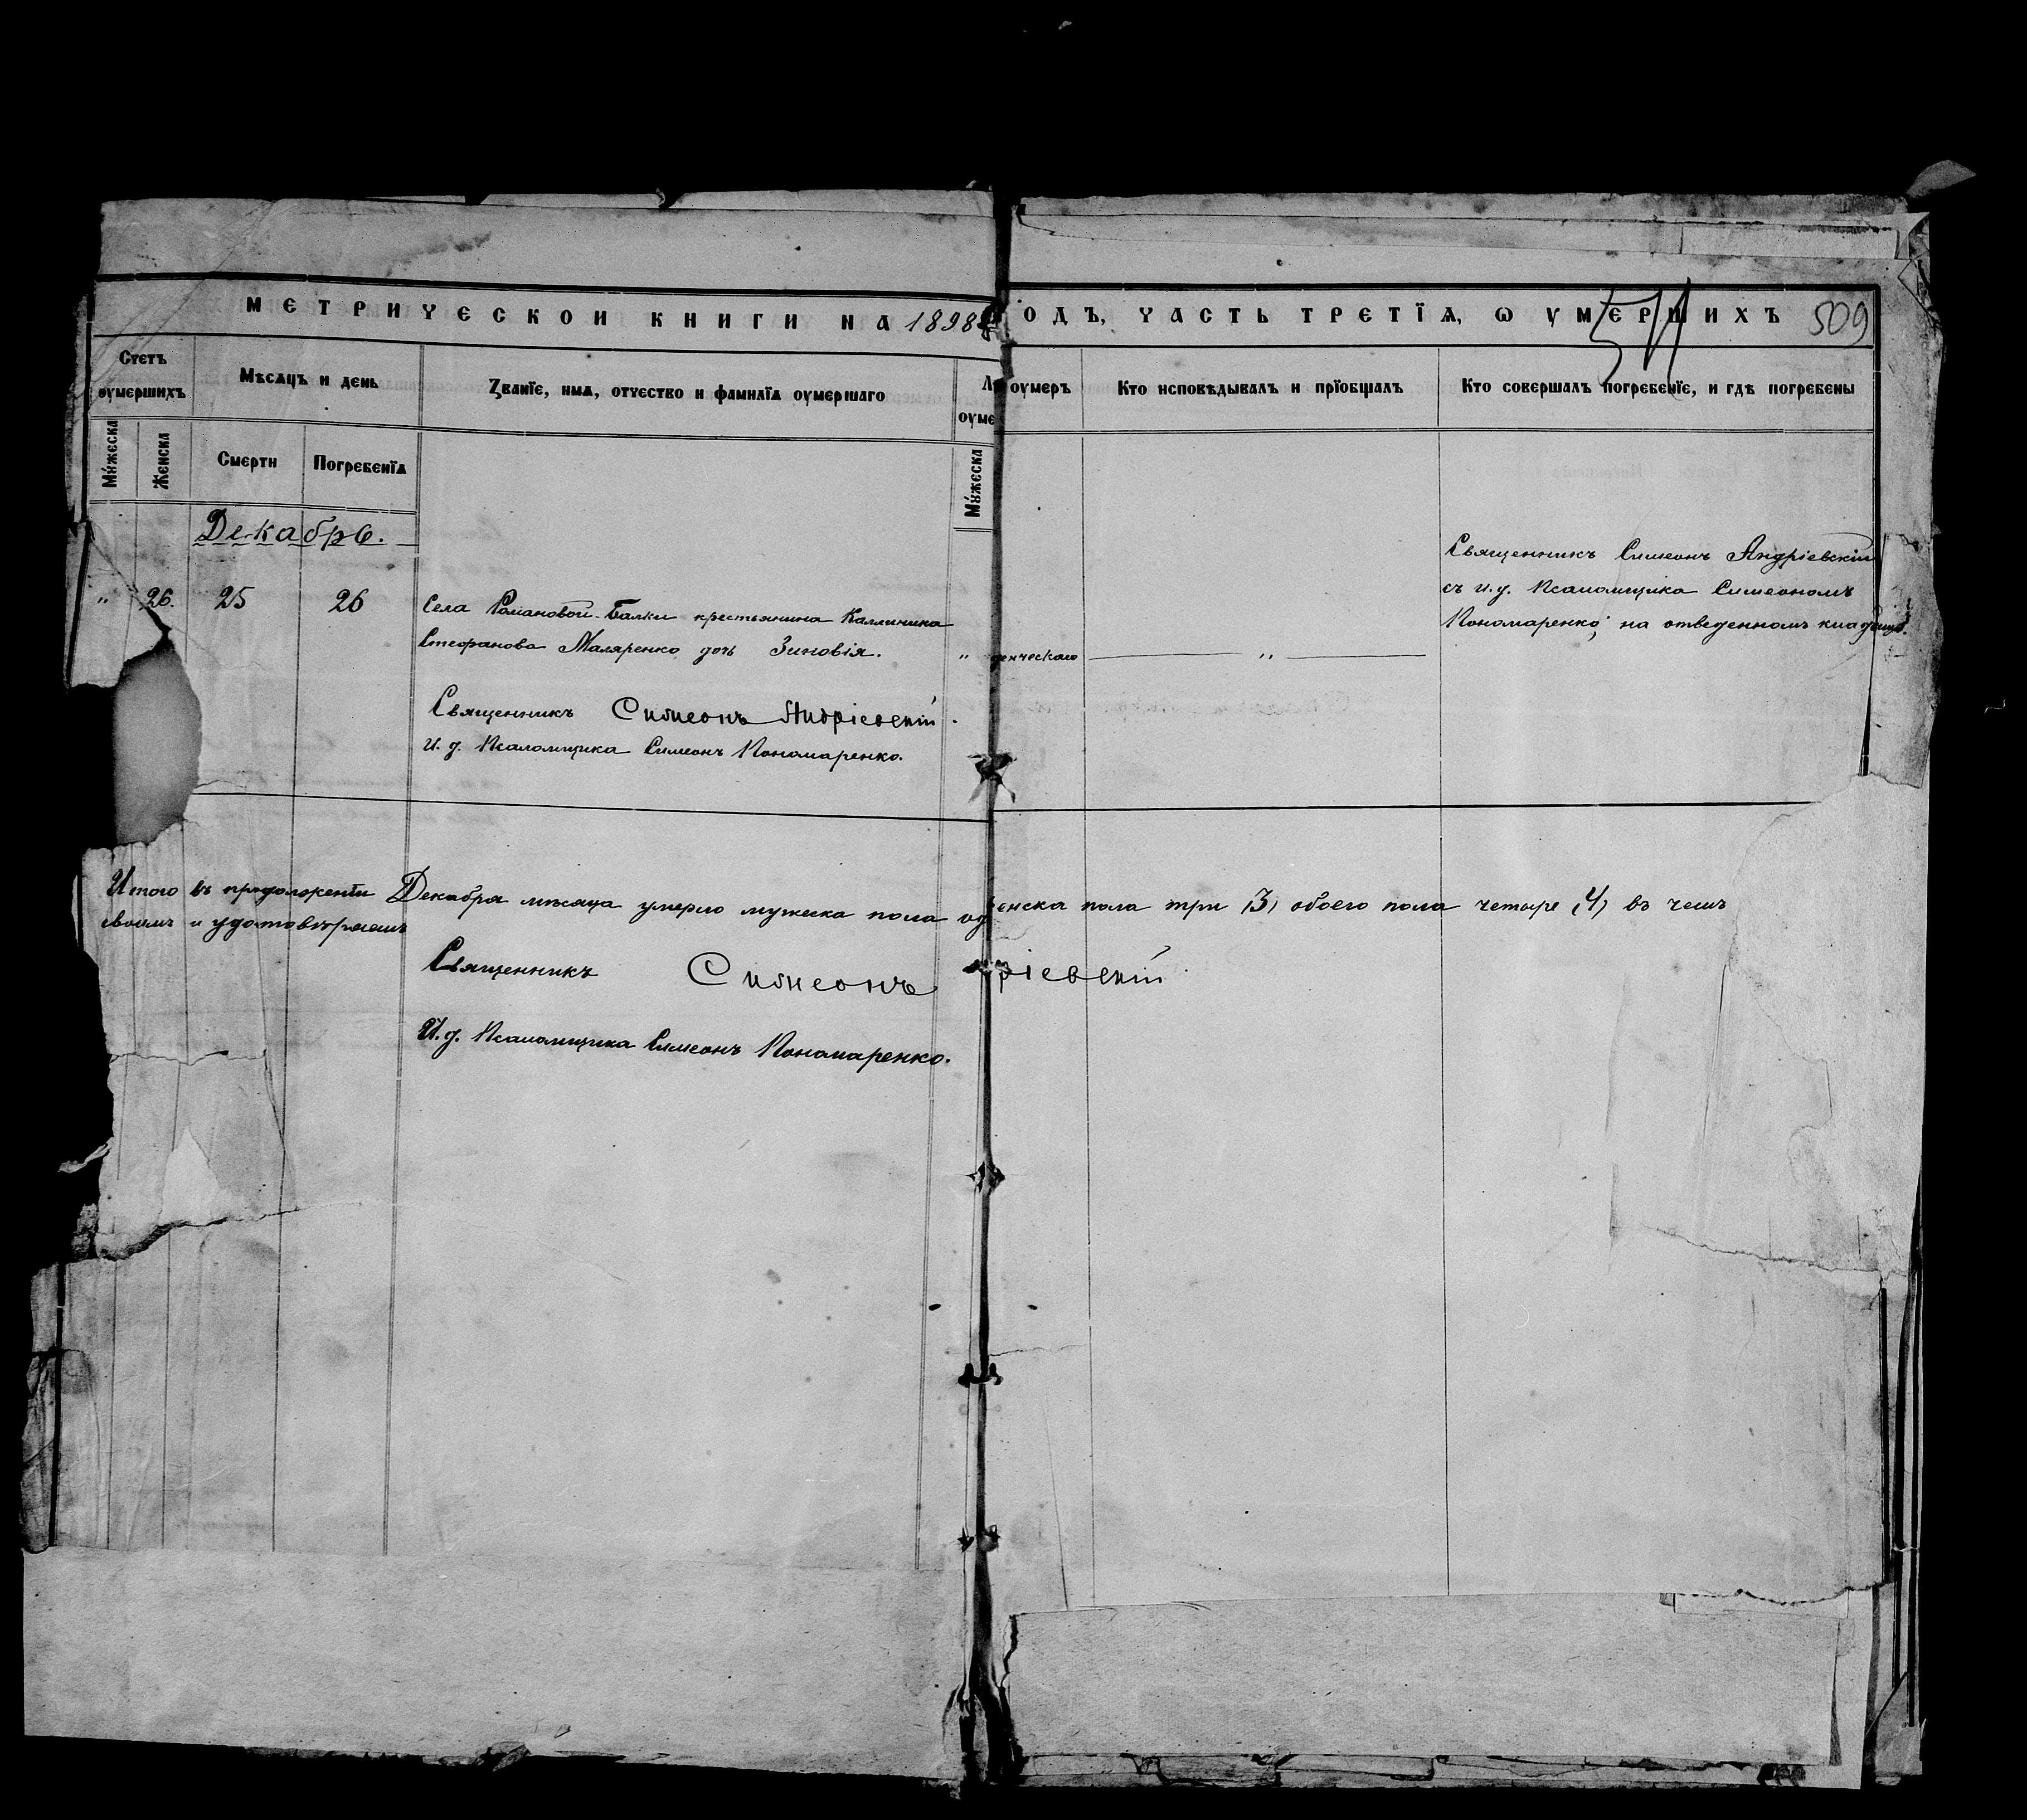 МЕТРИЧЕСКОЙ КНИГИ НА 1898 ОДЪ, ЧАСТЬ ТРЕТЇѦ, Ѡ УМЕРШИХЪ 509
Счетъ оумершихъ
Мѣсѧцъ и день
Званїе, имѧ, отчество и фамилїѧ оумершаго
оумеръ
Кто исповѣдывалъ и прїобщалъ
Кто совершалъ погребенїе, и гдѣ погребены
Мужеска
Женска
Смерти
Погребенїѧ
Мужеска
Декабрь.
" 26. 25 26
Села Романовой-Балки крестьянина Каллиника
Стефанова Маляренко дочь Зиновія.
" "
Священникъ Симеонъ Андріевскій
съ и. д. Псаломщика Симеономъ
Пономаренко; на отведенномъ кладбищѣ.
Священникъ Симеонъ Андріевскій.
И. д. Псаломщика Симеонъ Пономаренко.
Итого въ продолженіи Декабря мѣсяца умерло мужеска пола од енска пола три (3) обоего пола четыре (4) въ чемъ
своимъ и удостовѣряемъ
Священникъ Симеонъ ріевскій
И. д. Псаломщика Симеонъ Пономаренко.